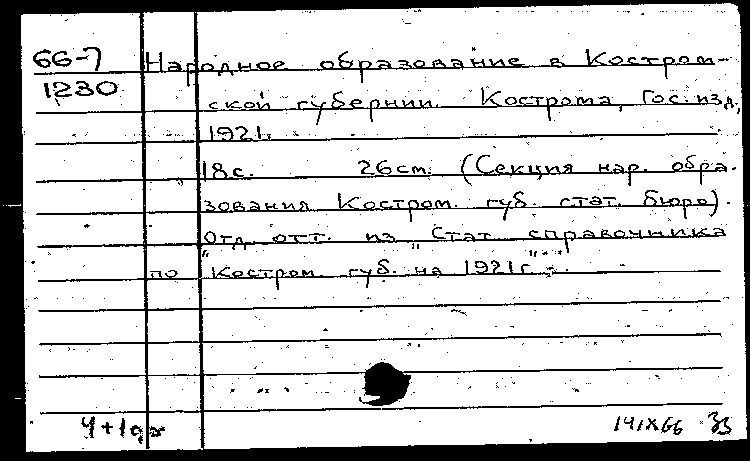 66-7 Народное образование в Костром-
1230 ской губернии. Кострома, Гос. изд.,
1921.
18с. 26см. (Секция нар. обра-
зования Костром. губ. стат. бюро).
Отд. отт. из „Стат. справочника
по Костром. губ. на 1921г."
14IX66